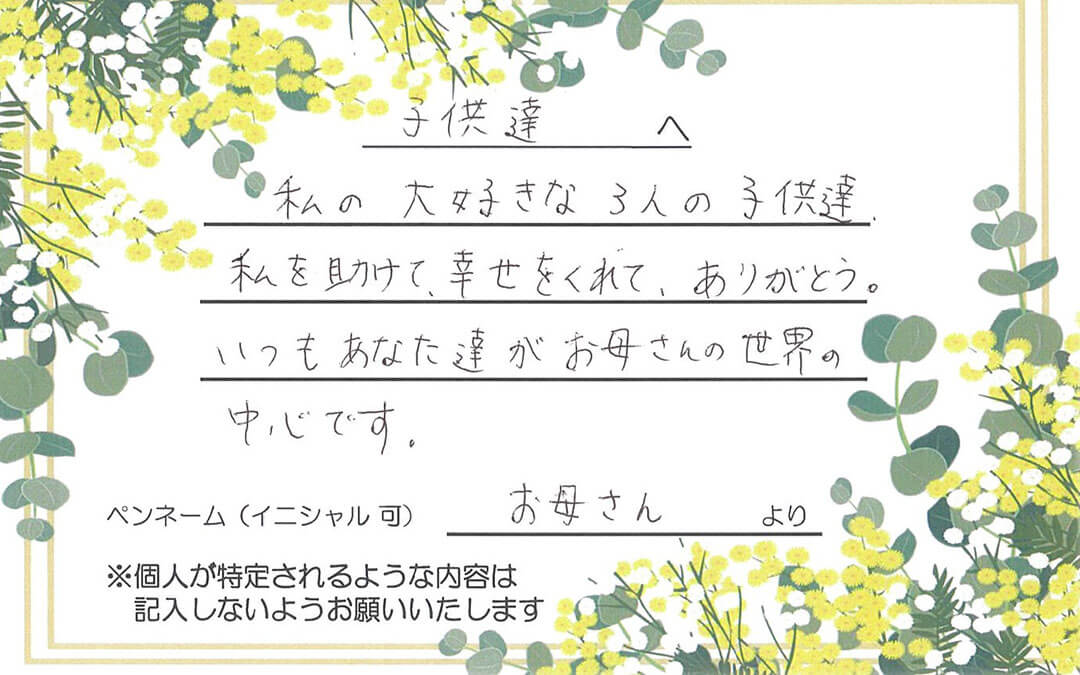 子供達 へ
私の 大好きな 3人の 子供達、
私を助けて、幸せをくれて、ありがとう。
いつも あなた達が お母さんの世界の
中心です。
ペンネーム（イニシャル 可） お母さん より
※個人が特定されるような内容は
記入しないようお願いいたします